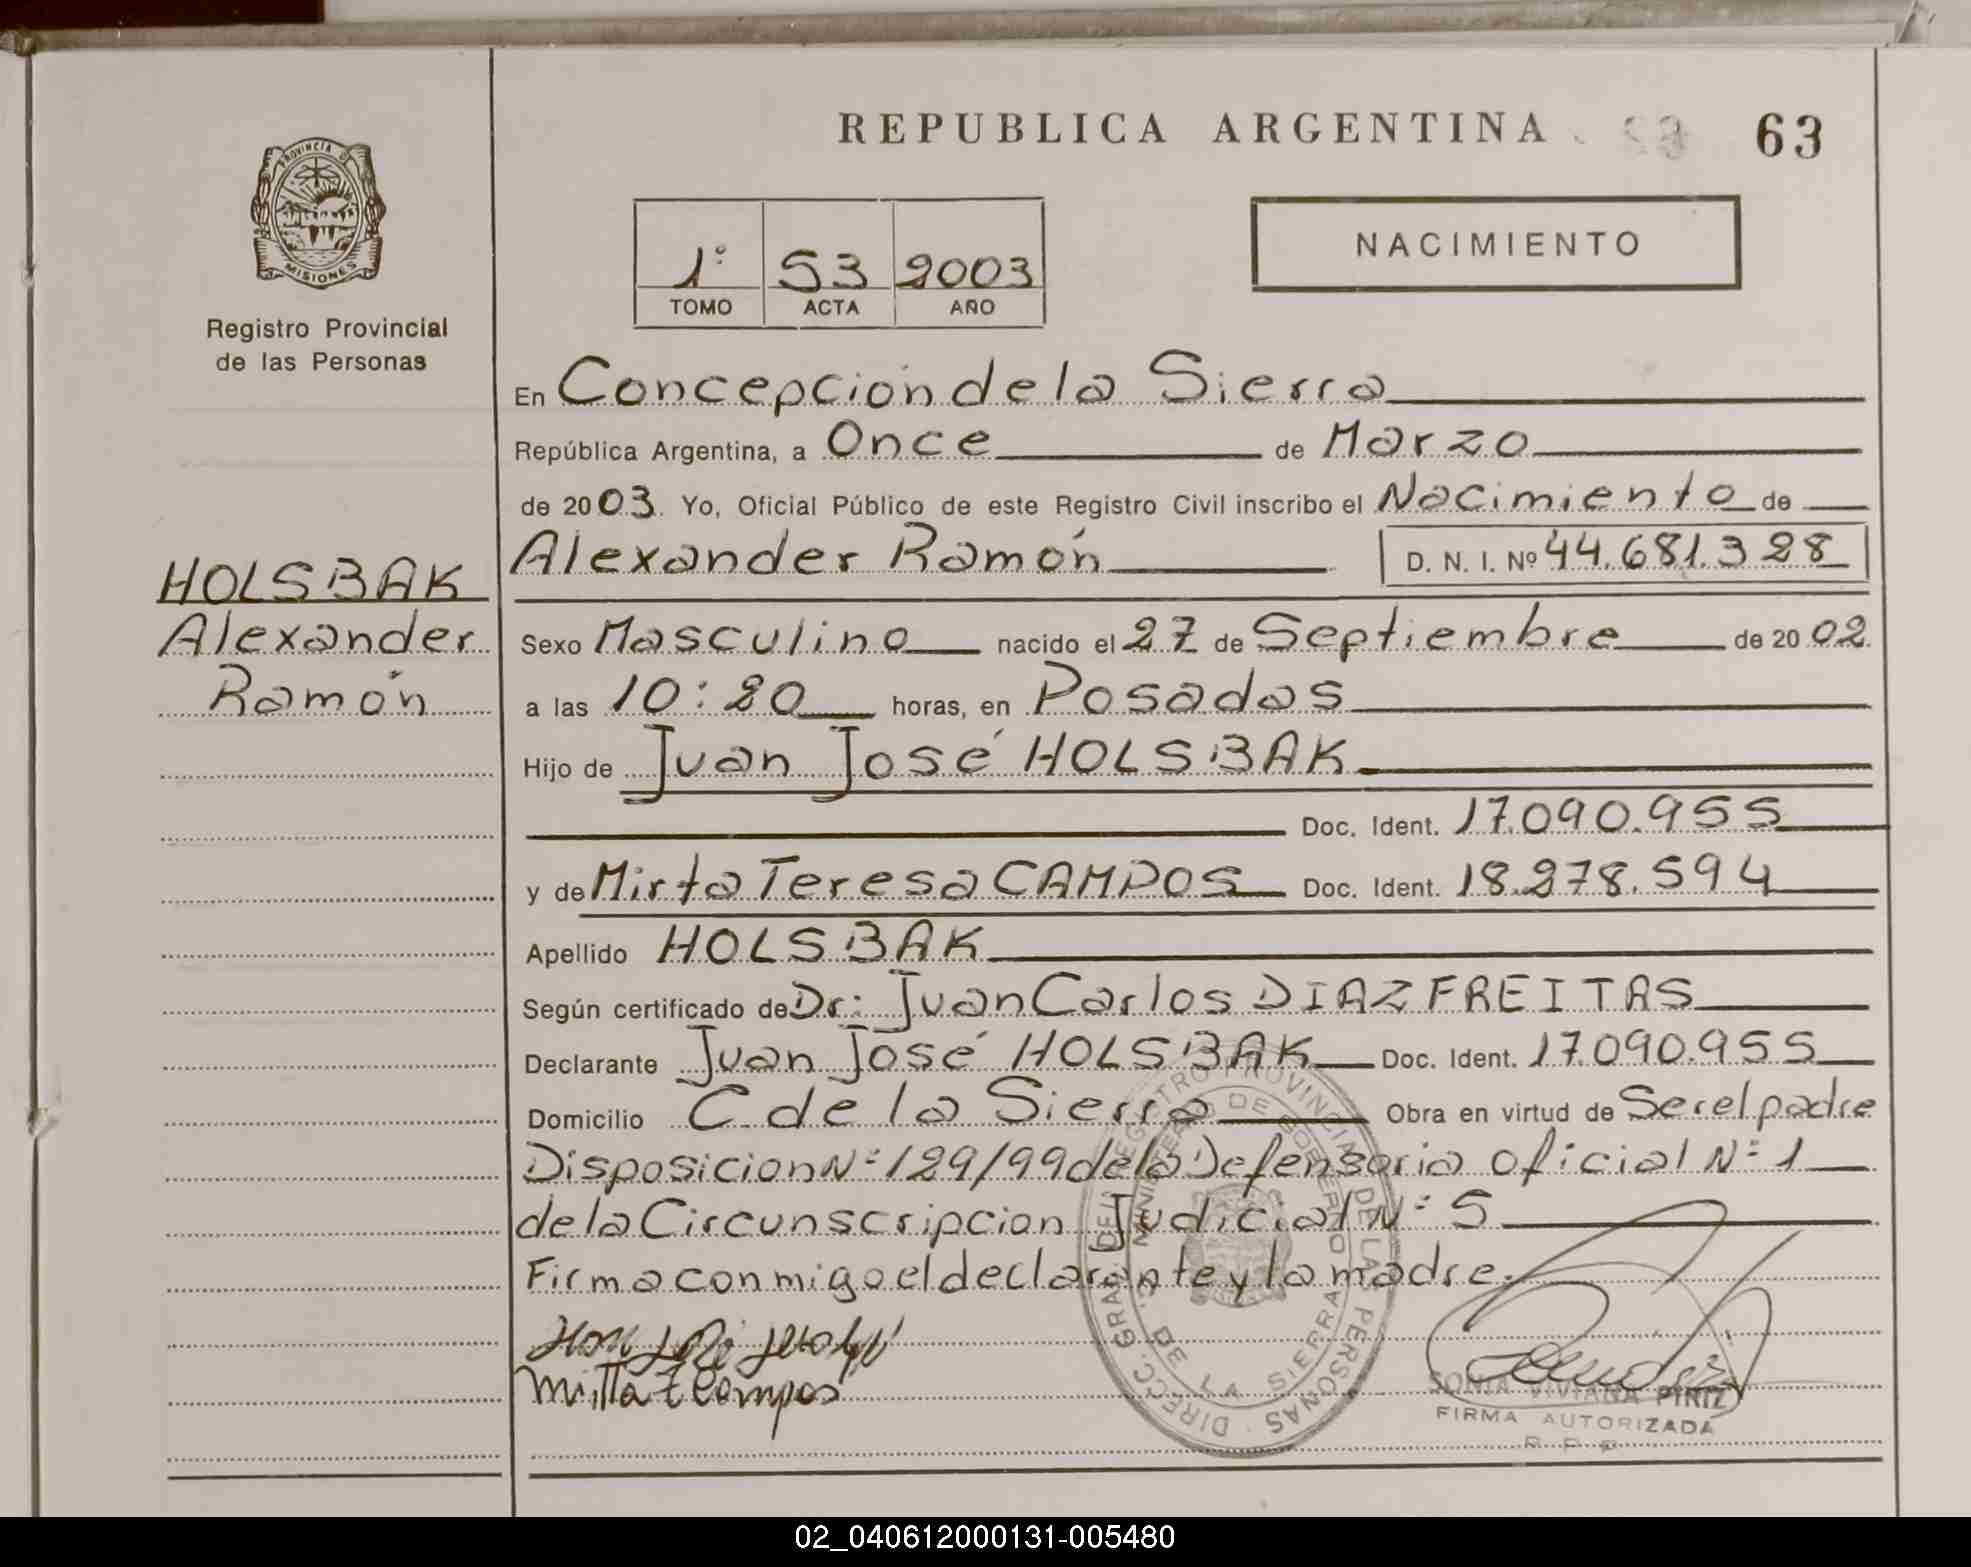 REPUBLICA ARGENTINA 63
PROVINCIA DE
MISIONES
Registro Provincial
de las Personas
1º 53 2003
TOMO ACTA AÑO
NACIMIENTO
En Concepción de la Sierra
República Argentina, a Once de Marzo
de 2003. Yo, Oficial Público de este Registro Civil inscribo el Nacimiento de
Alexander Ramón D. N. I. Nº 44.681.328
HOLSBAK
Alexander
Ramón
Sexo Masculino nacido el 27 de Septiembre de 2002.
a las 10:20 horas, en Posadas
Hijo de Juan José HOLSBAK
Doc. Ident. 17.090.955
y de Mirta Teresa CAMPOS Doc. Ident. 18.278.594
Apellido HOLSBAK
Según certificado de Dr: Juan Carlos DIAZ FREITAS
Declarante Juan José HOLSBAK Doc. Ident. 17.090.955
Domicilio C. de la Sierra Obra en virtud de Ser el padre
Disposicion Nº 129/99 de la Defensoria Oficial Nº 1
de la Circunscripcion Judicial Nº 5
Firma conmigo el declarante y la madre.
Mirta T Campos
DIRECC. GRAL. DEL REGISTRO PROVINCIAL DE LAS PERSONAS
MINISTERIO DE GOBIERNO
C. DE LA SIERRA
SONIA VIVIANA PIRIZ
FIRMA AUTORIZADA
R. P. P.
02_040612000131-005480